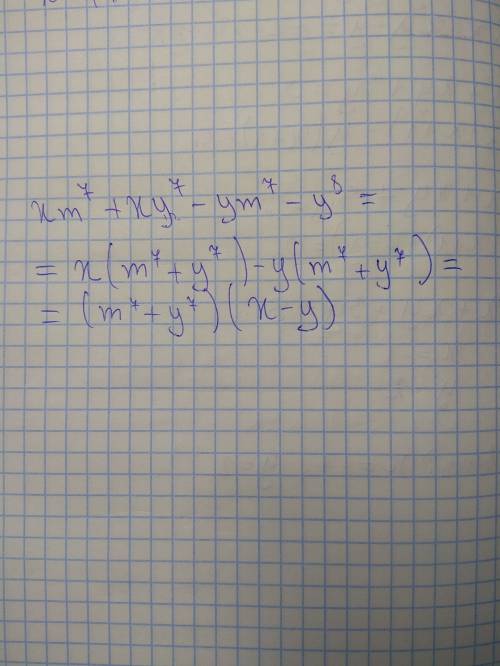 xm⁷ + xy⁷ - ym⁷ - y⁸ =
= x(m⁷ + y⁷) - y(m⁷ + y⁷) =
= (m⁷ + y⁷)(x - y)